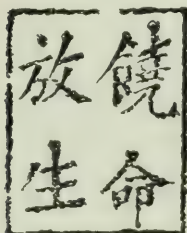 饒命
放生